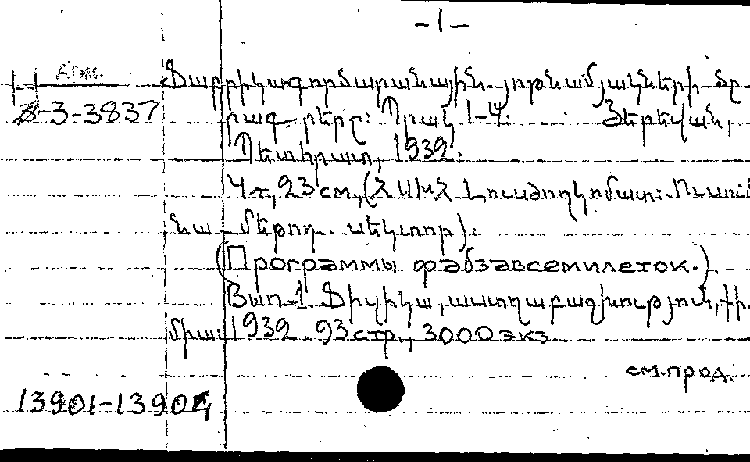 -1-
Ֆաբրիկագործարանային յոթնամյակների ծր
8-3-3837 րագրերը: Պրակ 1-4. Յերեվան,
Պետհրատ, 1939.
4 т, 23 см, (ՀՍԽՀ Լուսժողկոմատ: Ուսում
նա-մեթոդ. սեկտոր).
(Программы фабзавсемилеток.)
Պրակ 1 Ֆիզիկա, աստղաբաշխություն, քի-
միա: 1939 93 стр., 3000 экз
см.прод.
13901-13904